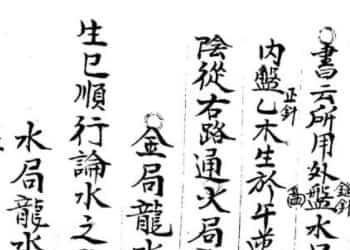 書云所用外盤水
縫針
正針
内盤乙木生於午
陰從右路通火局
金局龍水
生巳順行論水之
水局龍水